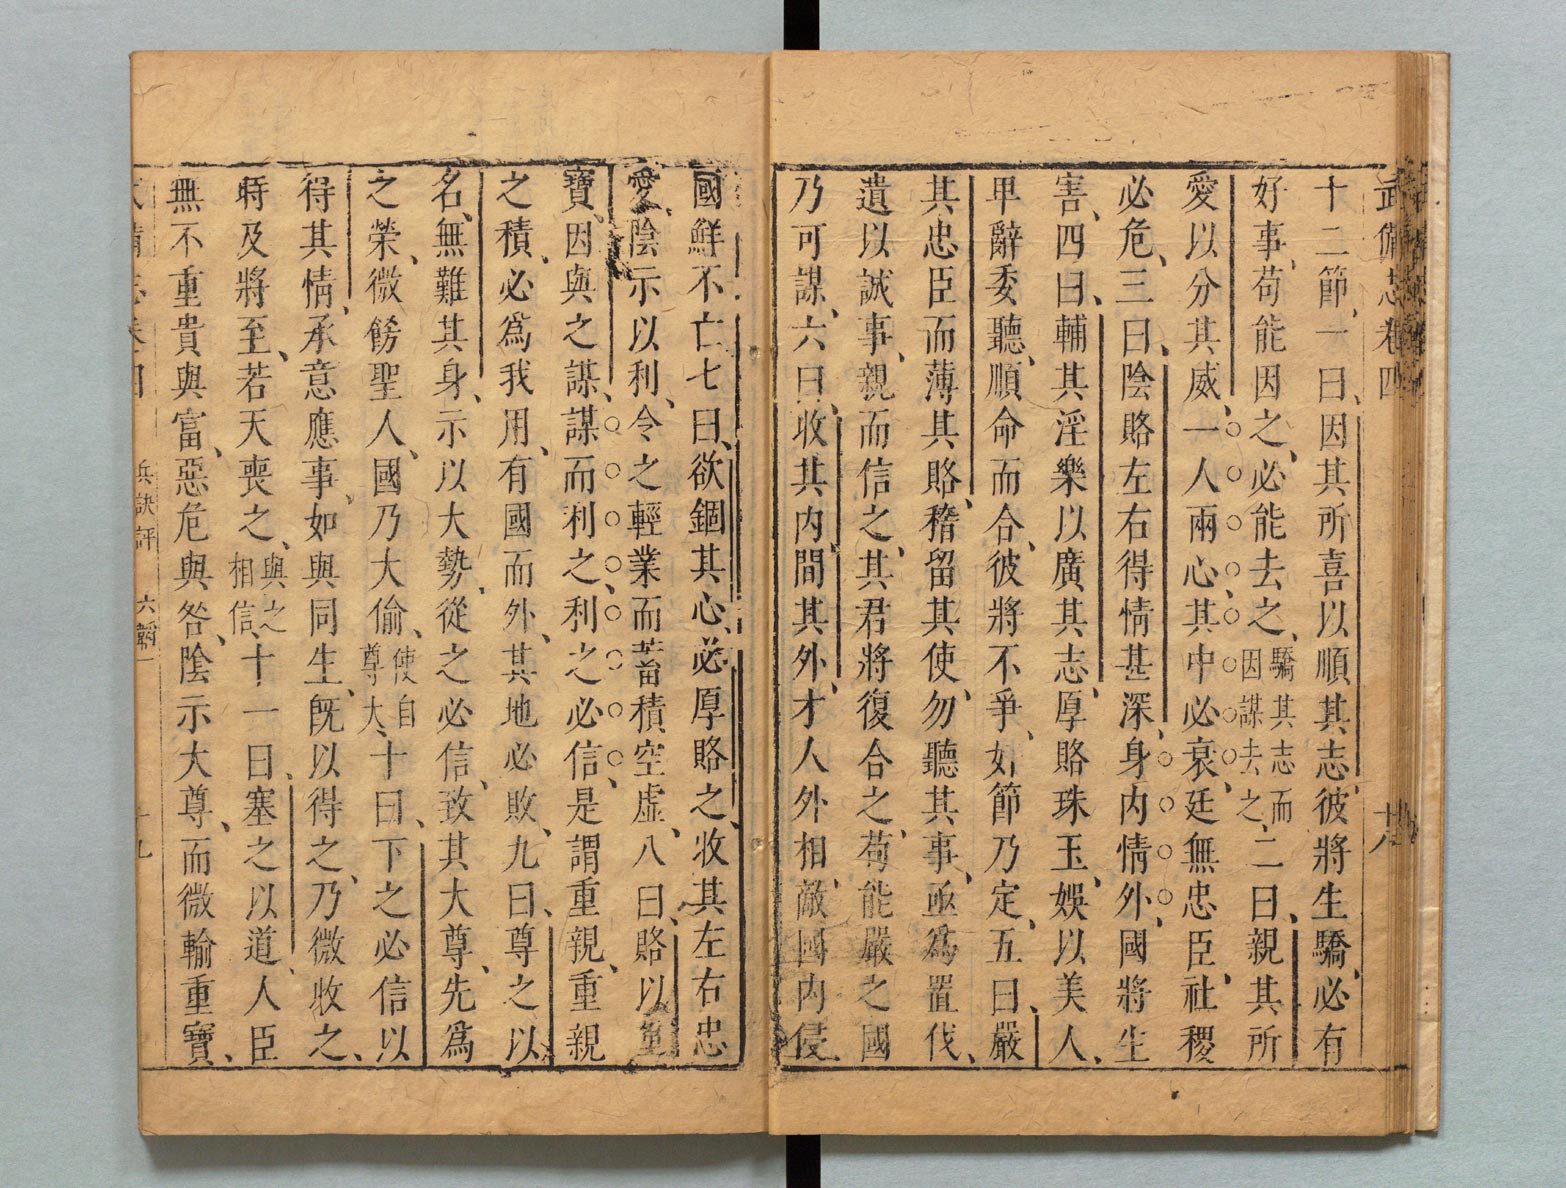 武備志卷四
十八
十二節、一曰、因其所喜以順其志、彼將生驕、必有
好事、苟能因之、必能去之、驕其志而因謀去之、二曰、親其所
愛以分其威、一人兩心、其中必衰、廷無忠臣、社稷
必危、三曰、陰賂左右得情甚深、身内情外、國將生
害、四曰、輔其淫樂以廣其志、厚賂珠玉、娛以美人、
卑辭委聽、順命而合、彼將不爭、奸節乃定、五曰、嚴
其忠臣而薄其賂、稽留其使、勿聽其事、亟爲置伐、
遺以誠事、親而信之、其君將復合之、苟能嚴之國
乃可謀、六曰、收其内、間其外、才人外相、敵國内侵、
國鮮不亡七曰、欲錮其心、必厚賂之、收其左右忠
愛、陰示以利、令之輕業而蓄積空虛、八曰、賂以重
寶、因與之謀、謀而利之、利之必信、是謂重親、重親
之積、必爲我用、有國而外、其地必敗、九曰、尊之以
名、無難其身、示以大勢、從之必信、致其大尊、先爲
之榮、微餙聖人、國乃大偷、使自尊大、十曰、下之必信以
得其情、承意應事、如與同生、旣以得之、乃微收之、
時及將至、若天喪之、與之相信、十一曰、塞之以道、人臣
無不重貴與富、惡危與咎、陰示大尊、而微輸重寶、
武備志卷四 兵訣評 六韜一 十九